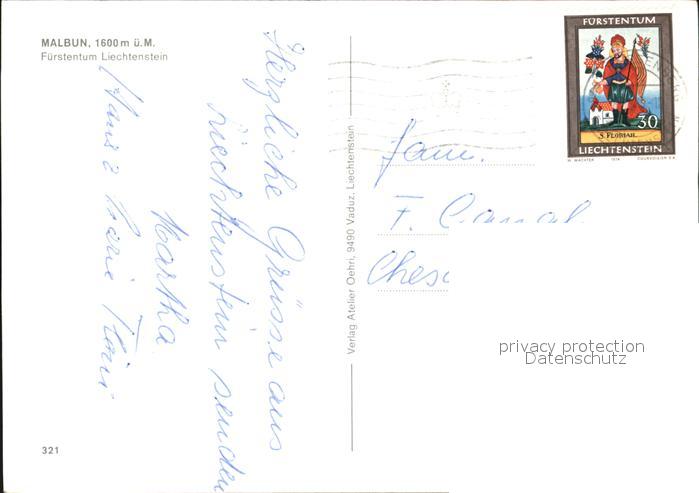 MALBUN, 1600 m ü.M.
Fürstentum Liechtenstein
Herzliche Grüsse aus
Liechtenstein senden
Martha
Hans &
321
Verlag Atelier Oehri, 9490 Vaduz, Liechtenstein
FÜRSTENTUM
30
S. FLORIAN.
LIECHTENSTEIN
W. WACHTER 1974 COURVOISIER S.A.
Fam.
F.
privacy protection
Datenschutz